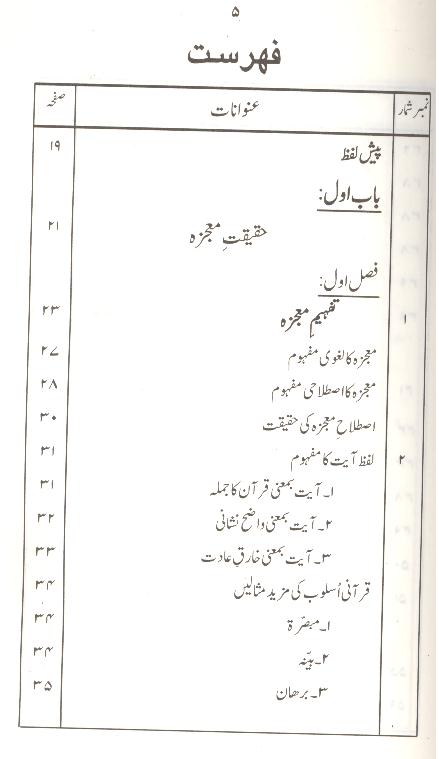 ۵
فہرست
نمبر شمار عنوانات صفحہ
پیش لفظ ۱۹
باب اول:
حقیقتِ معجزہ ۲۱
فصل اول:
۱ تفہیمِ معجزہ ۲۳
معجزہ کا لغوی مفہوم ۲۷
معجزہ کا اصطلاحی مفہوم ۲۸
اصطلاحِ معجزہ کی حقیقت ۳۰
۲ لفظ آیت کا مفہوم ۳۱
۱۔ آیت بمعنی قرآن کا جملہ ۳۱
۲۔ آیت بمعنی واضح نشانی ۳۲
۳۔ آیت بمعنی خارقِ عادت ۳۳
قرآنی اُسلوب کی مزید مثالیں ۳۴
۱۔ مبصّرۃ ۳۴
۲۔ بیّنہ ۳۴
۳۔ برھان ۳۵